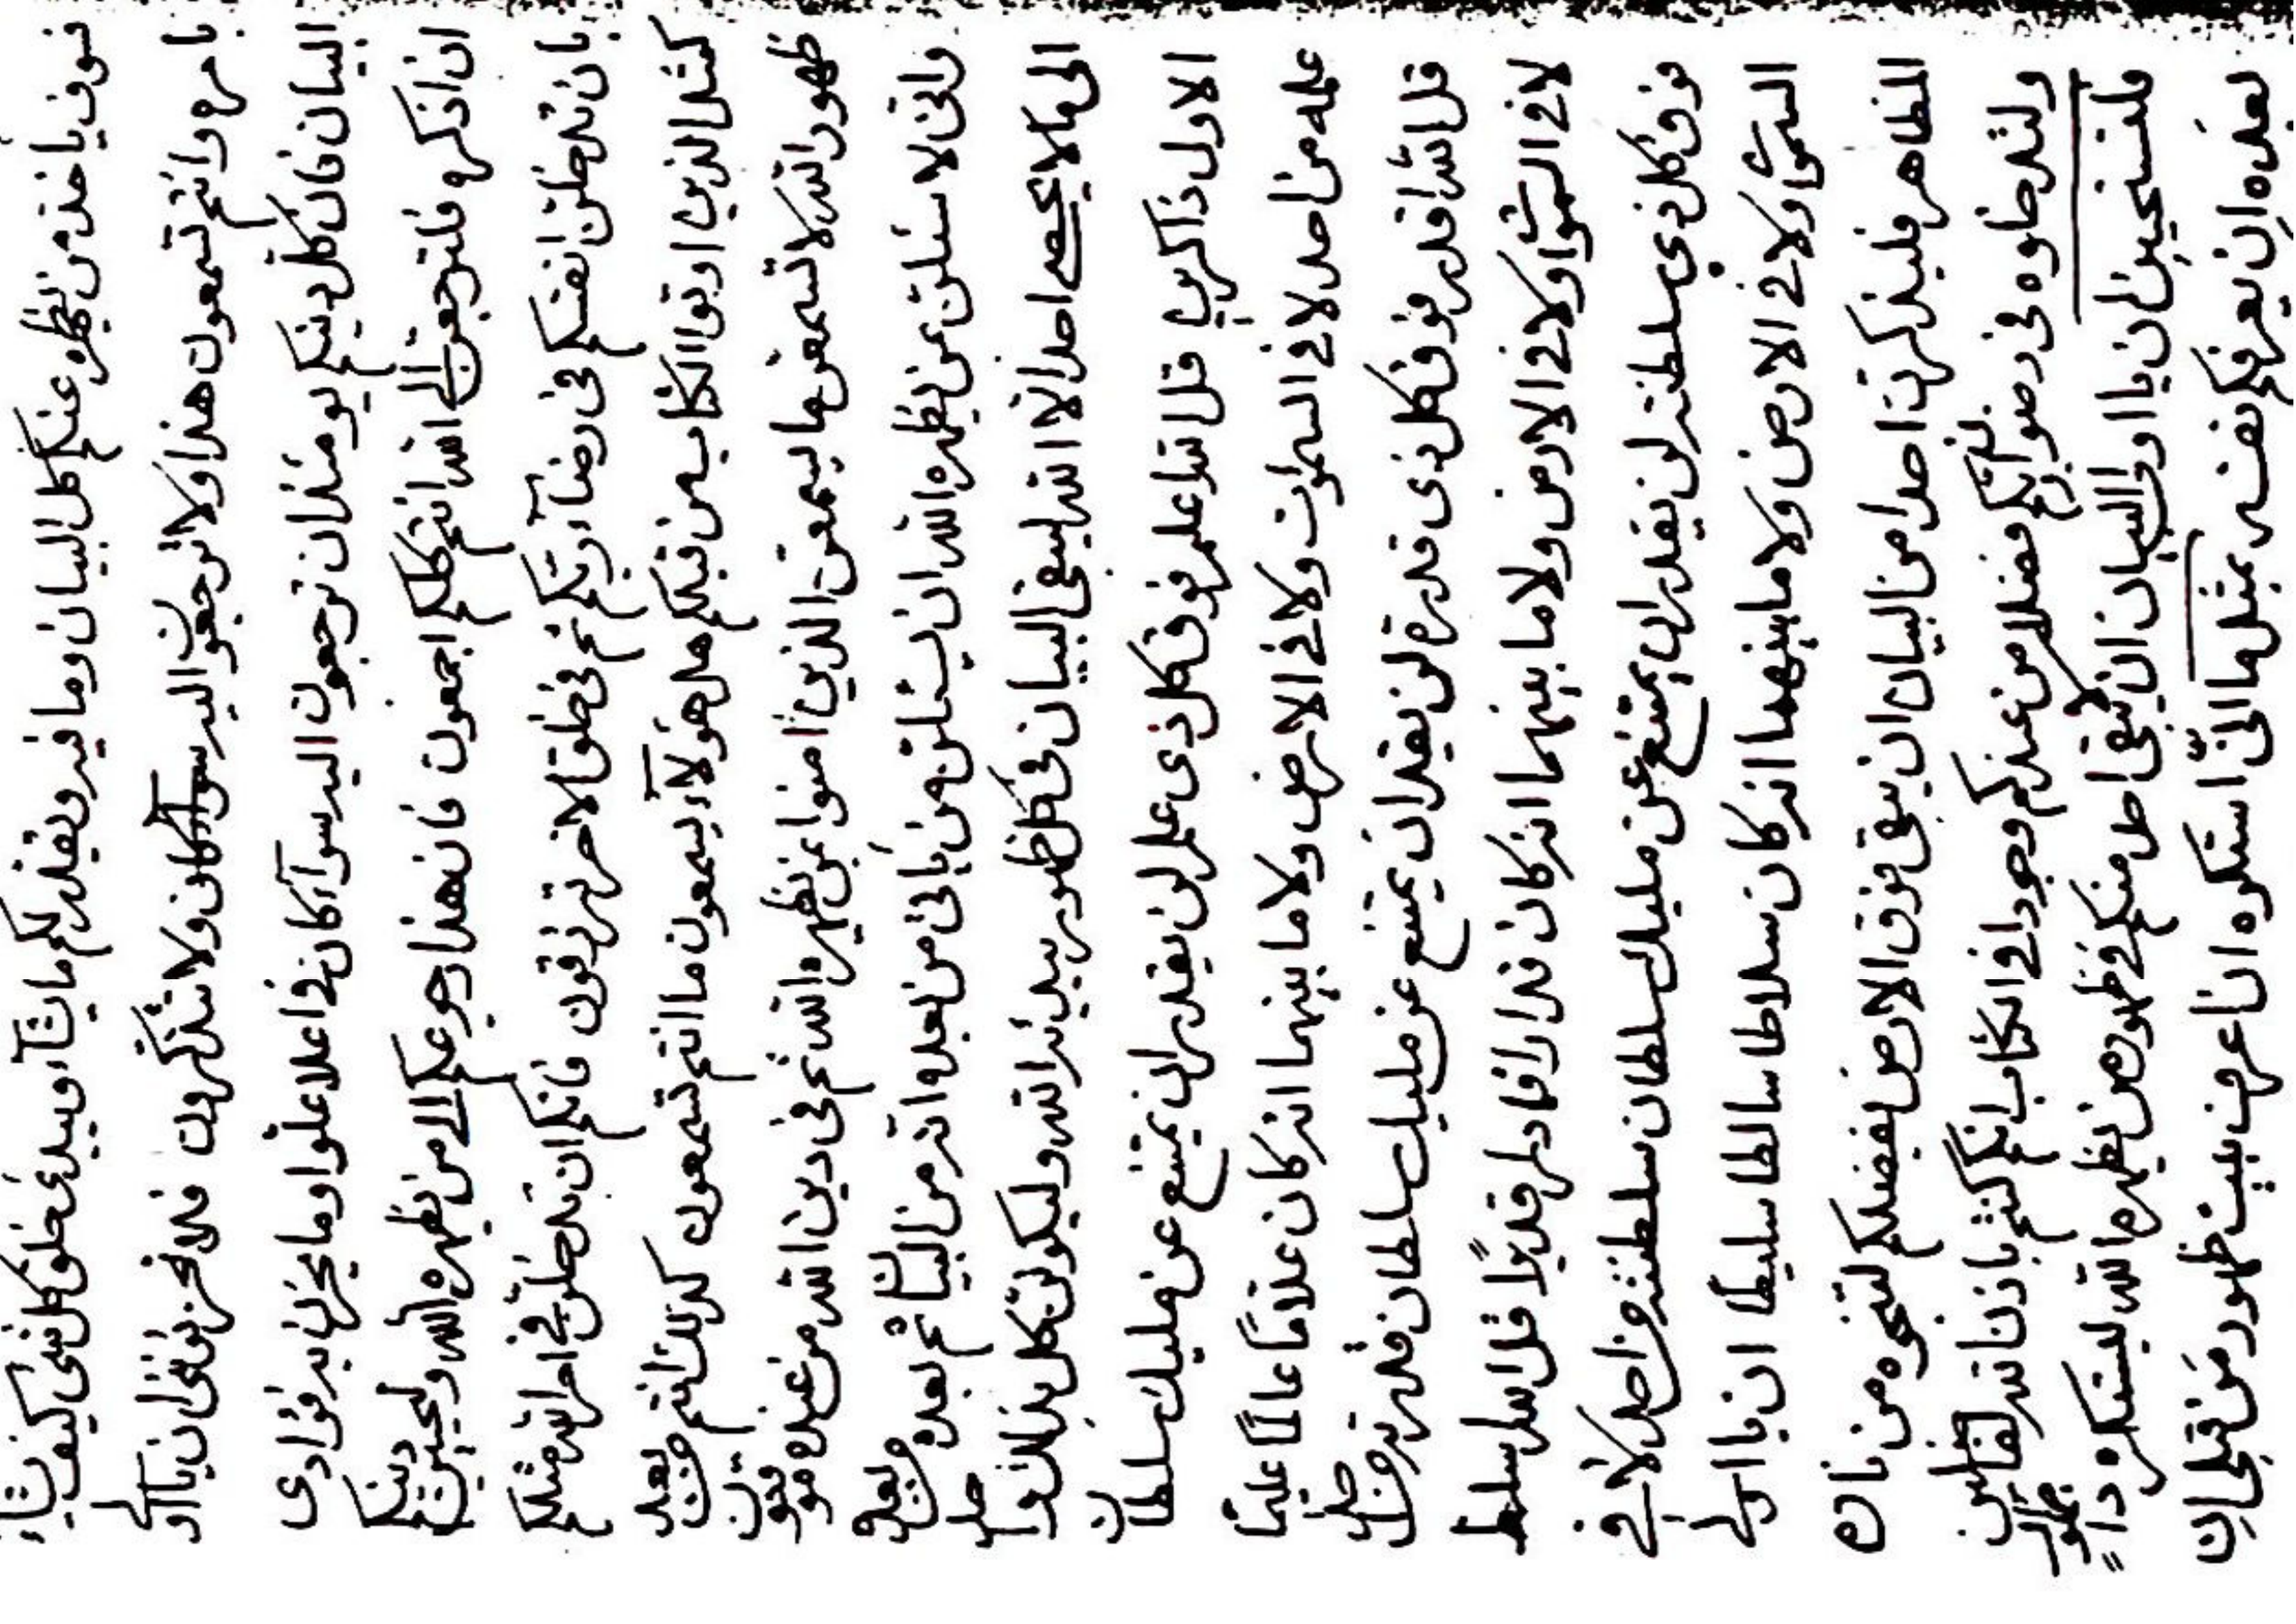 فسوف ياخذ من يظهره عنكم كل البيان وما فيه ويقدر لكم ما يشآء ويبدئ خلق كل شئ كيف يشاء
بامره وانتم تسمعون هذا ولا ترجعون اليه سوآء كان ولا تتذكرون فلا تحزنونى ان يا اولى
البيان فان كل دينكم يومئذ ان ترجعون اليه سوآء كان فى اعلا علو او ما يحزن به فؤادى
ان اذكره فلترجعن الى الله انتم كلكم اجمعون فان هذا رجوعكم الى من يظهره الله ولتجيبن دينكم
بان تدخلن انفسكم فى رضآء ربكم ثم فى خلق الاخر ترزقون فانكم ان تدخلن فى امر الله مثلكم
كمثل الذين اوتوا الكتاب من قبلكم هل هؤلآء يسمعون ما انتم تسمعون كذلك انتم من بعد
ظهور الله لا تسمعن ما يسمعن الذين امنوا بمن يظهره الله ثم فى دين الله من عنده موقنون
واننى لاسئلن عن من يظهره الله ان يسئلن من ياتى من بعده وانه من البيان ثم بعده من بعد
الى ما لا يحصى احدا الا الله ليبقى البيان فى كل ظهور يبدئه الله وليكونن كل بذلك
الاول ذاكرين قل الله اعلم فوق كل ذى علم لن يقدر ان يمتنع عن مليك سلطان
علمه من احد لا فى السموات ولا فى الارض ولا ما بينهما انه كان علاما عالما عليما
قل الله اقدر فوق كل ذى قدرة لن يقدر ان يمتنع عن مليك سلطان قدرته من احد
لا فى السموات ولا فى الارض ولا ما بينهما انه كان قدارا قادرا قديرا قل الله اسلط
فوق كل ذى سلطنة لن يقدر ان يمتنع عن مليك سلطان سلطنته من احد لا فى
السموات ولا فى الارض ولا ما بينهما انه كان سلاطا سالطا سليطا ان يا اولى
المظاهر فليذكرن احدا من البيان ان يبقى فوق الارض لفيضلكم لتنجوه من نار
ولتدخلوه فى رضوان ربكم فضلا من عندكم وجودا فى الكتاب انكم كنتم باذن الله لفاضلين
فلتستحيين ان يا اولى البيان ان لا يبقى احد منكم فى ظهور من يظهره الله ليستكره
بعده ان يعرفكم نفسه بمثل ما اننى استكره ان اعرف بيت ظهور من قبل ان